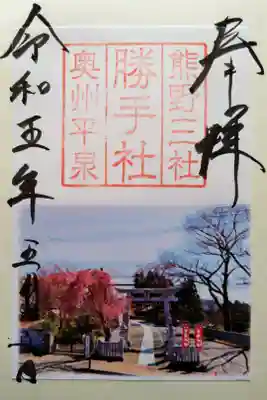 奉拝
熊野三社
勝手社
奥州平泉
令和五年五月一日